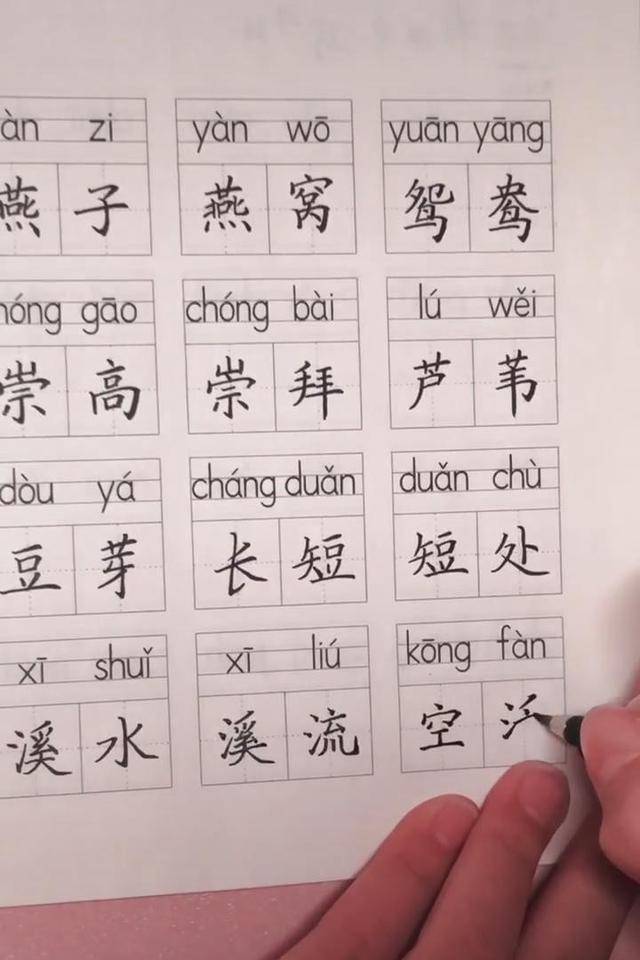 àn zi yàn wō yuān yāng
燕子 燕窝 鸳鸯
hóng gāo chóng bài lú wěi
崇高 崇拜 芦苇
dòu yá cháng duǎn duǎn chù
豆芽 长短 短处
xī shuǐ xī liú kōng fàn
溪水 溪流 空